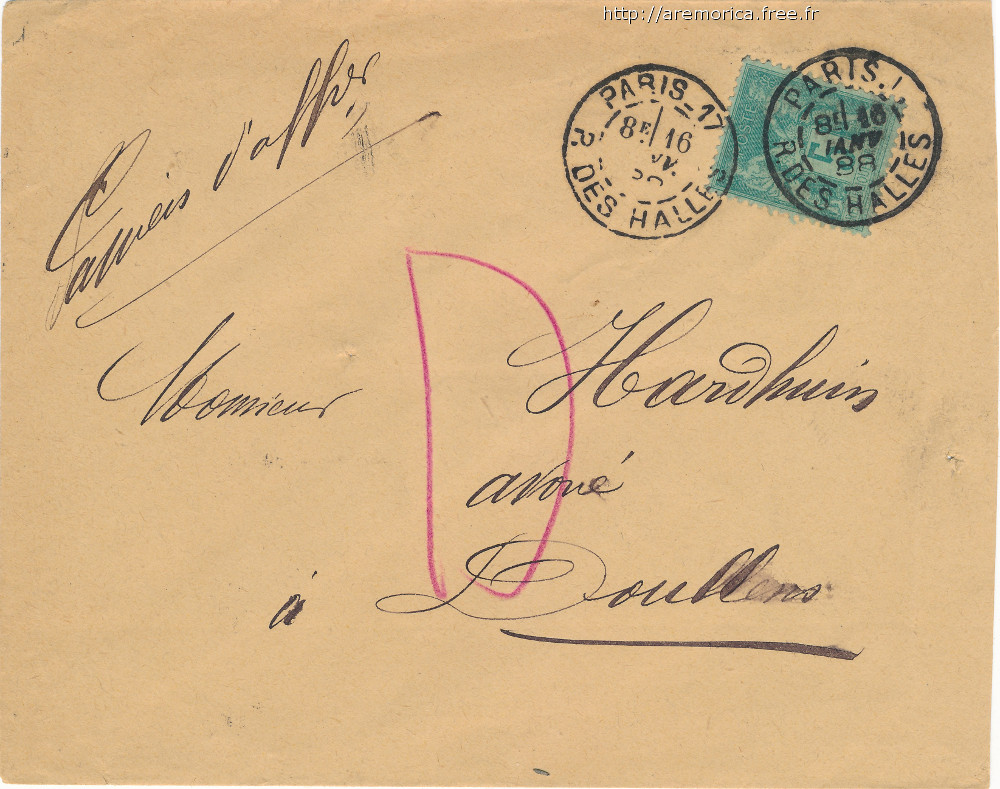 http://aremorica.free.fr
PARIS_17
8E 16
R. DES HALLES
PARIS.1
8E 16
JANV
88
R. DES HALLES
Papiers d'affres
D
Monsieur Hardhuin
avoué
à Doullens